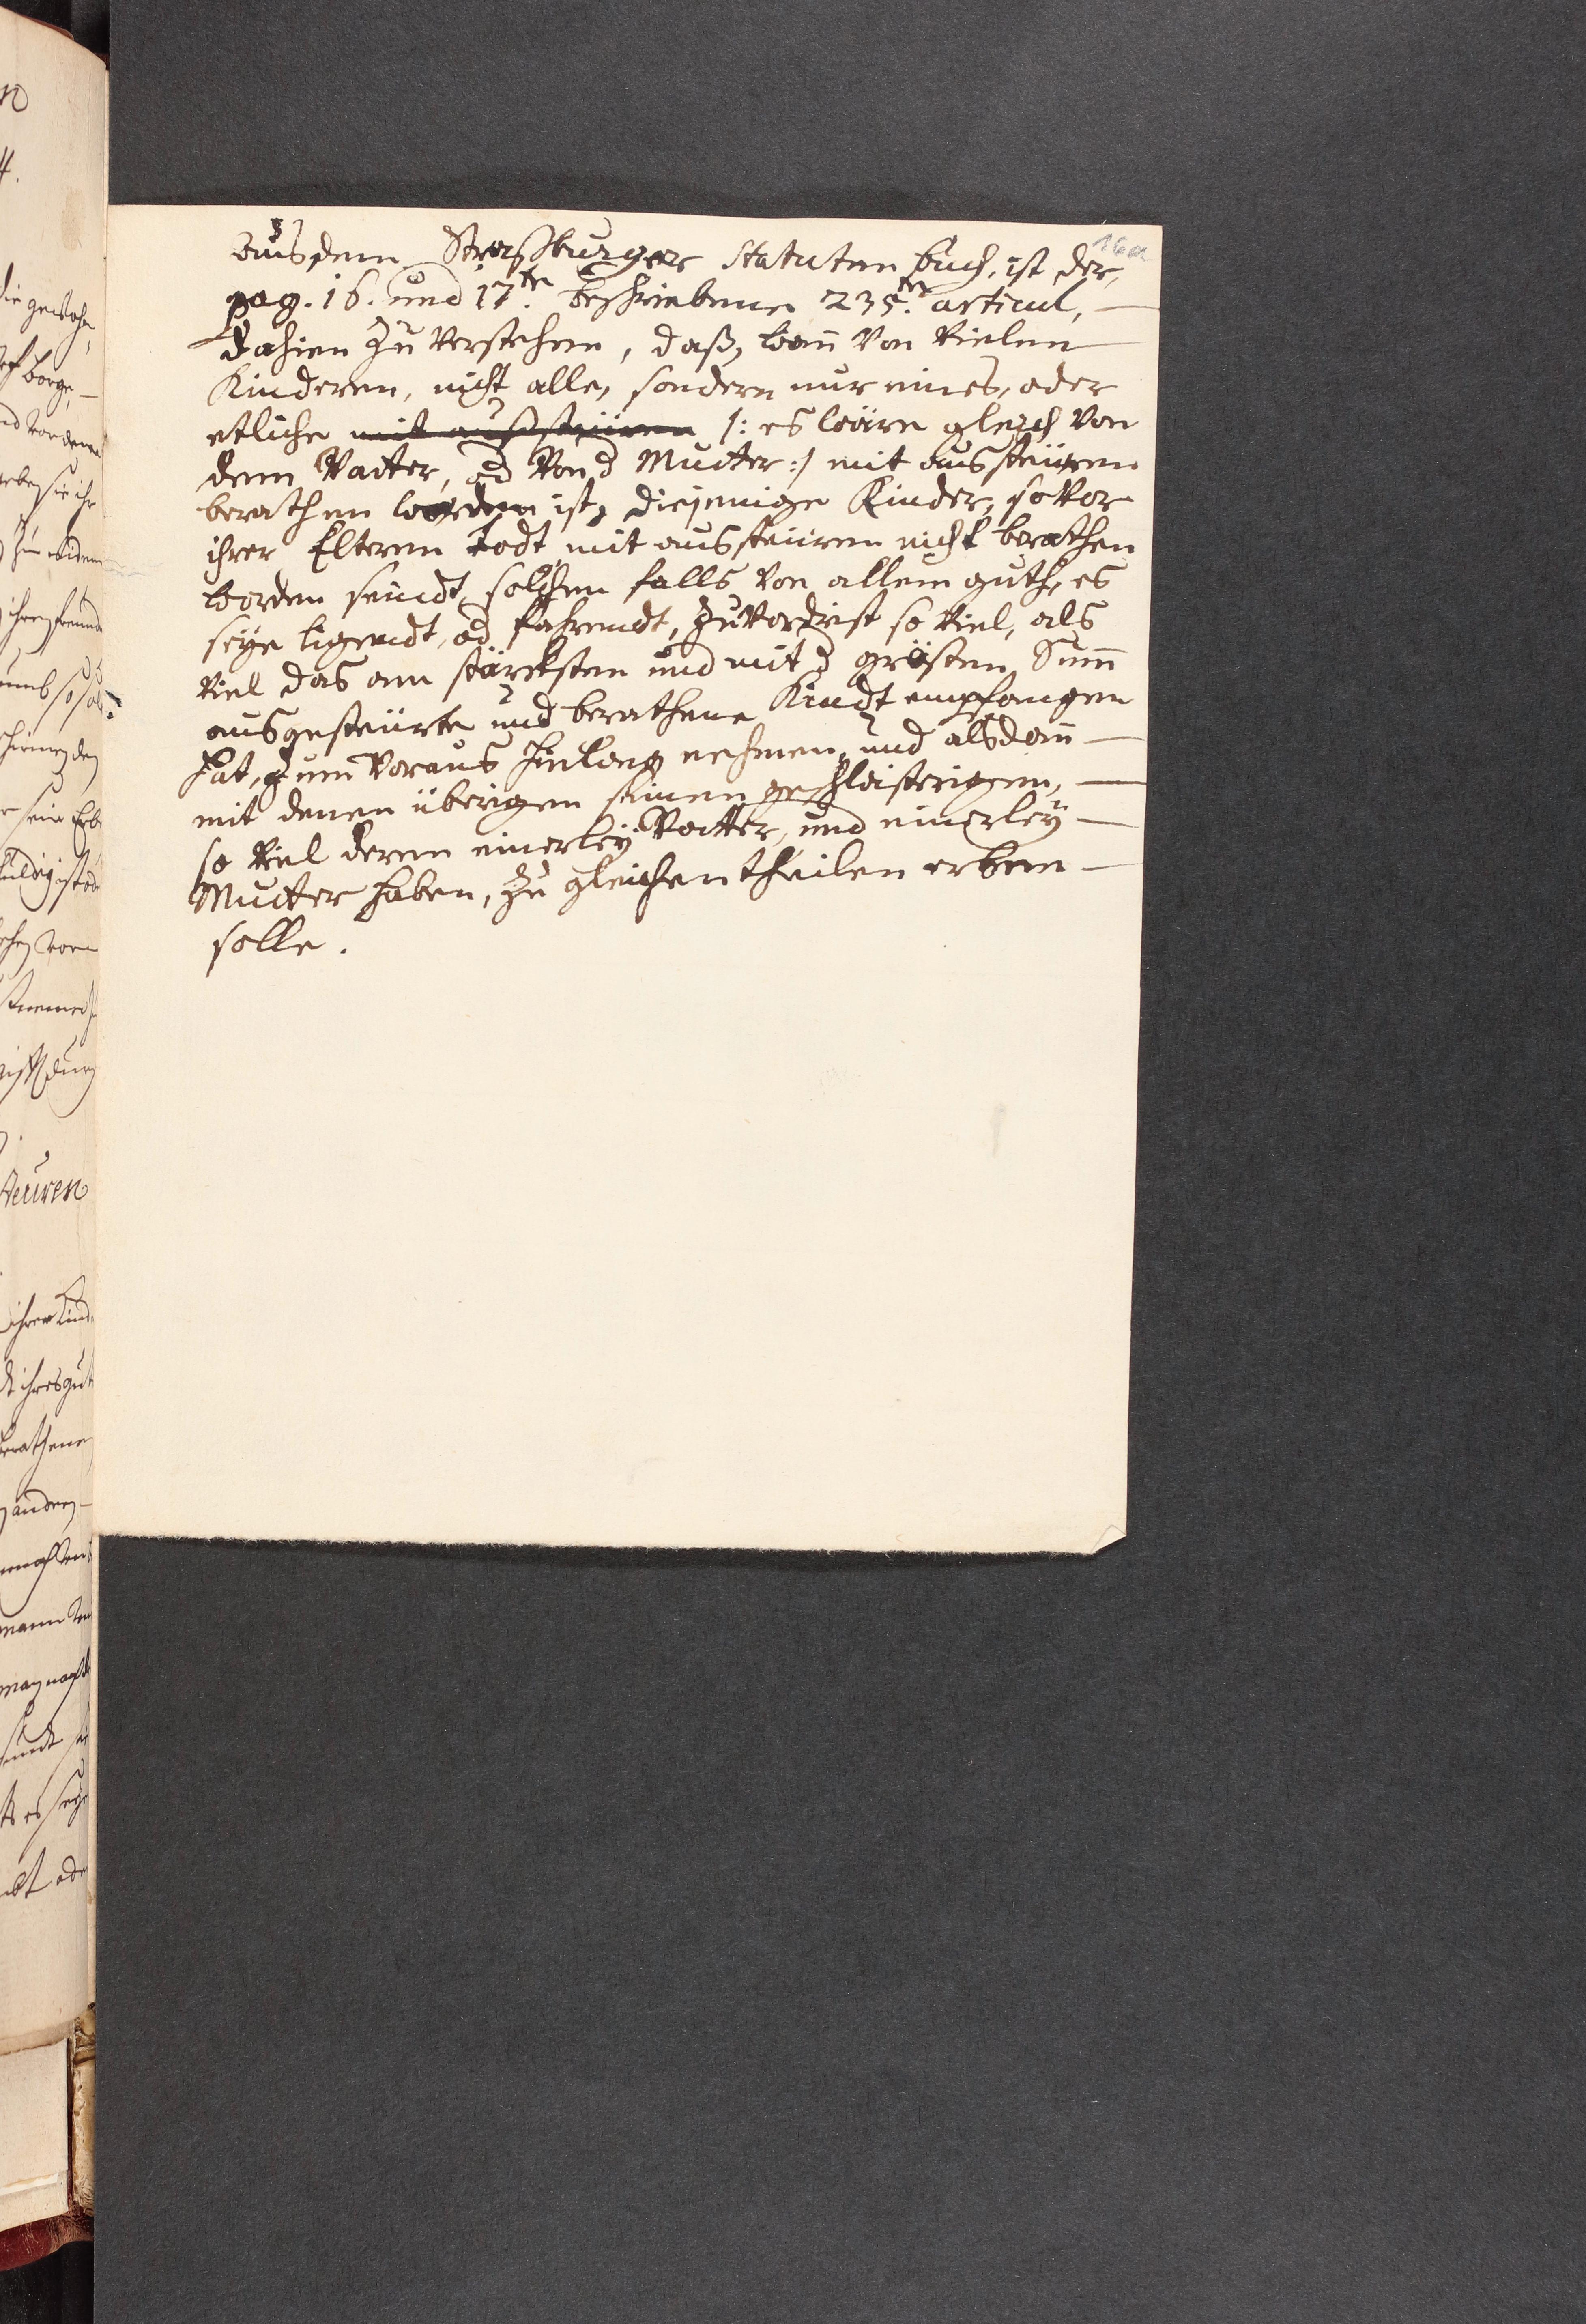 16a
Aus dem Straßburger Statuten buch, ist der,
pag. 16. und 17.te beschriebene 235.te articul, —
dahien zu verstehen, daß, wañ von vielen
Kinderen, nicht alle, sondern nur eines, oder
etliche mit außsteüren /: es wäre gleich von
dem Vatter, od von d Mutter :/ mit aussteüren
berathen worden ist, diejenige Kinder, so vor
ihrer Elteren todt mit aussteüren nicht berathen
worden seindt, solchen falls von allem guth, es
seÿe ligendt, od fahrendt, zuvordrist so viel, als
viel das am stärcksten und mit d grösten Sum̃
ausgesteürte und berathene Kindt empfangen
hat, zum Voraus nehmen, und alsdañ —
mit denen überigen seinen geschwisterigen, —
so viel deren einerleÿ Vatter, und einerleÿ —
Mutter haben, zu gleichen theilen erben —
solle.